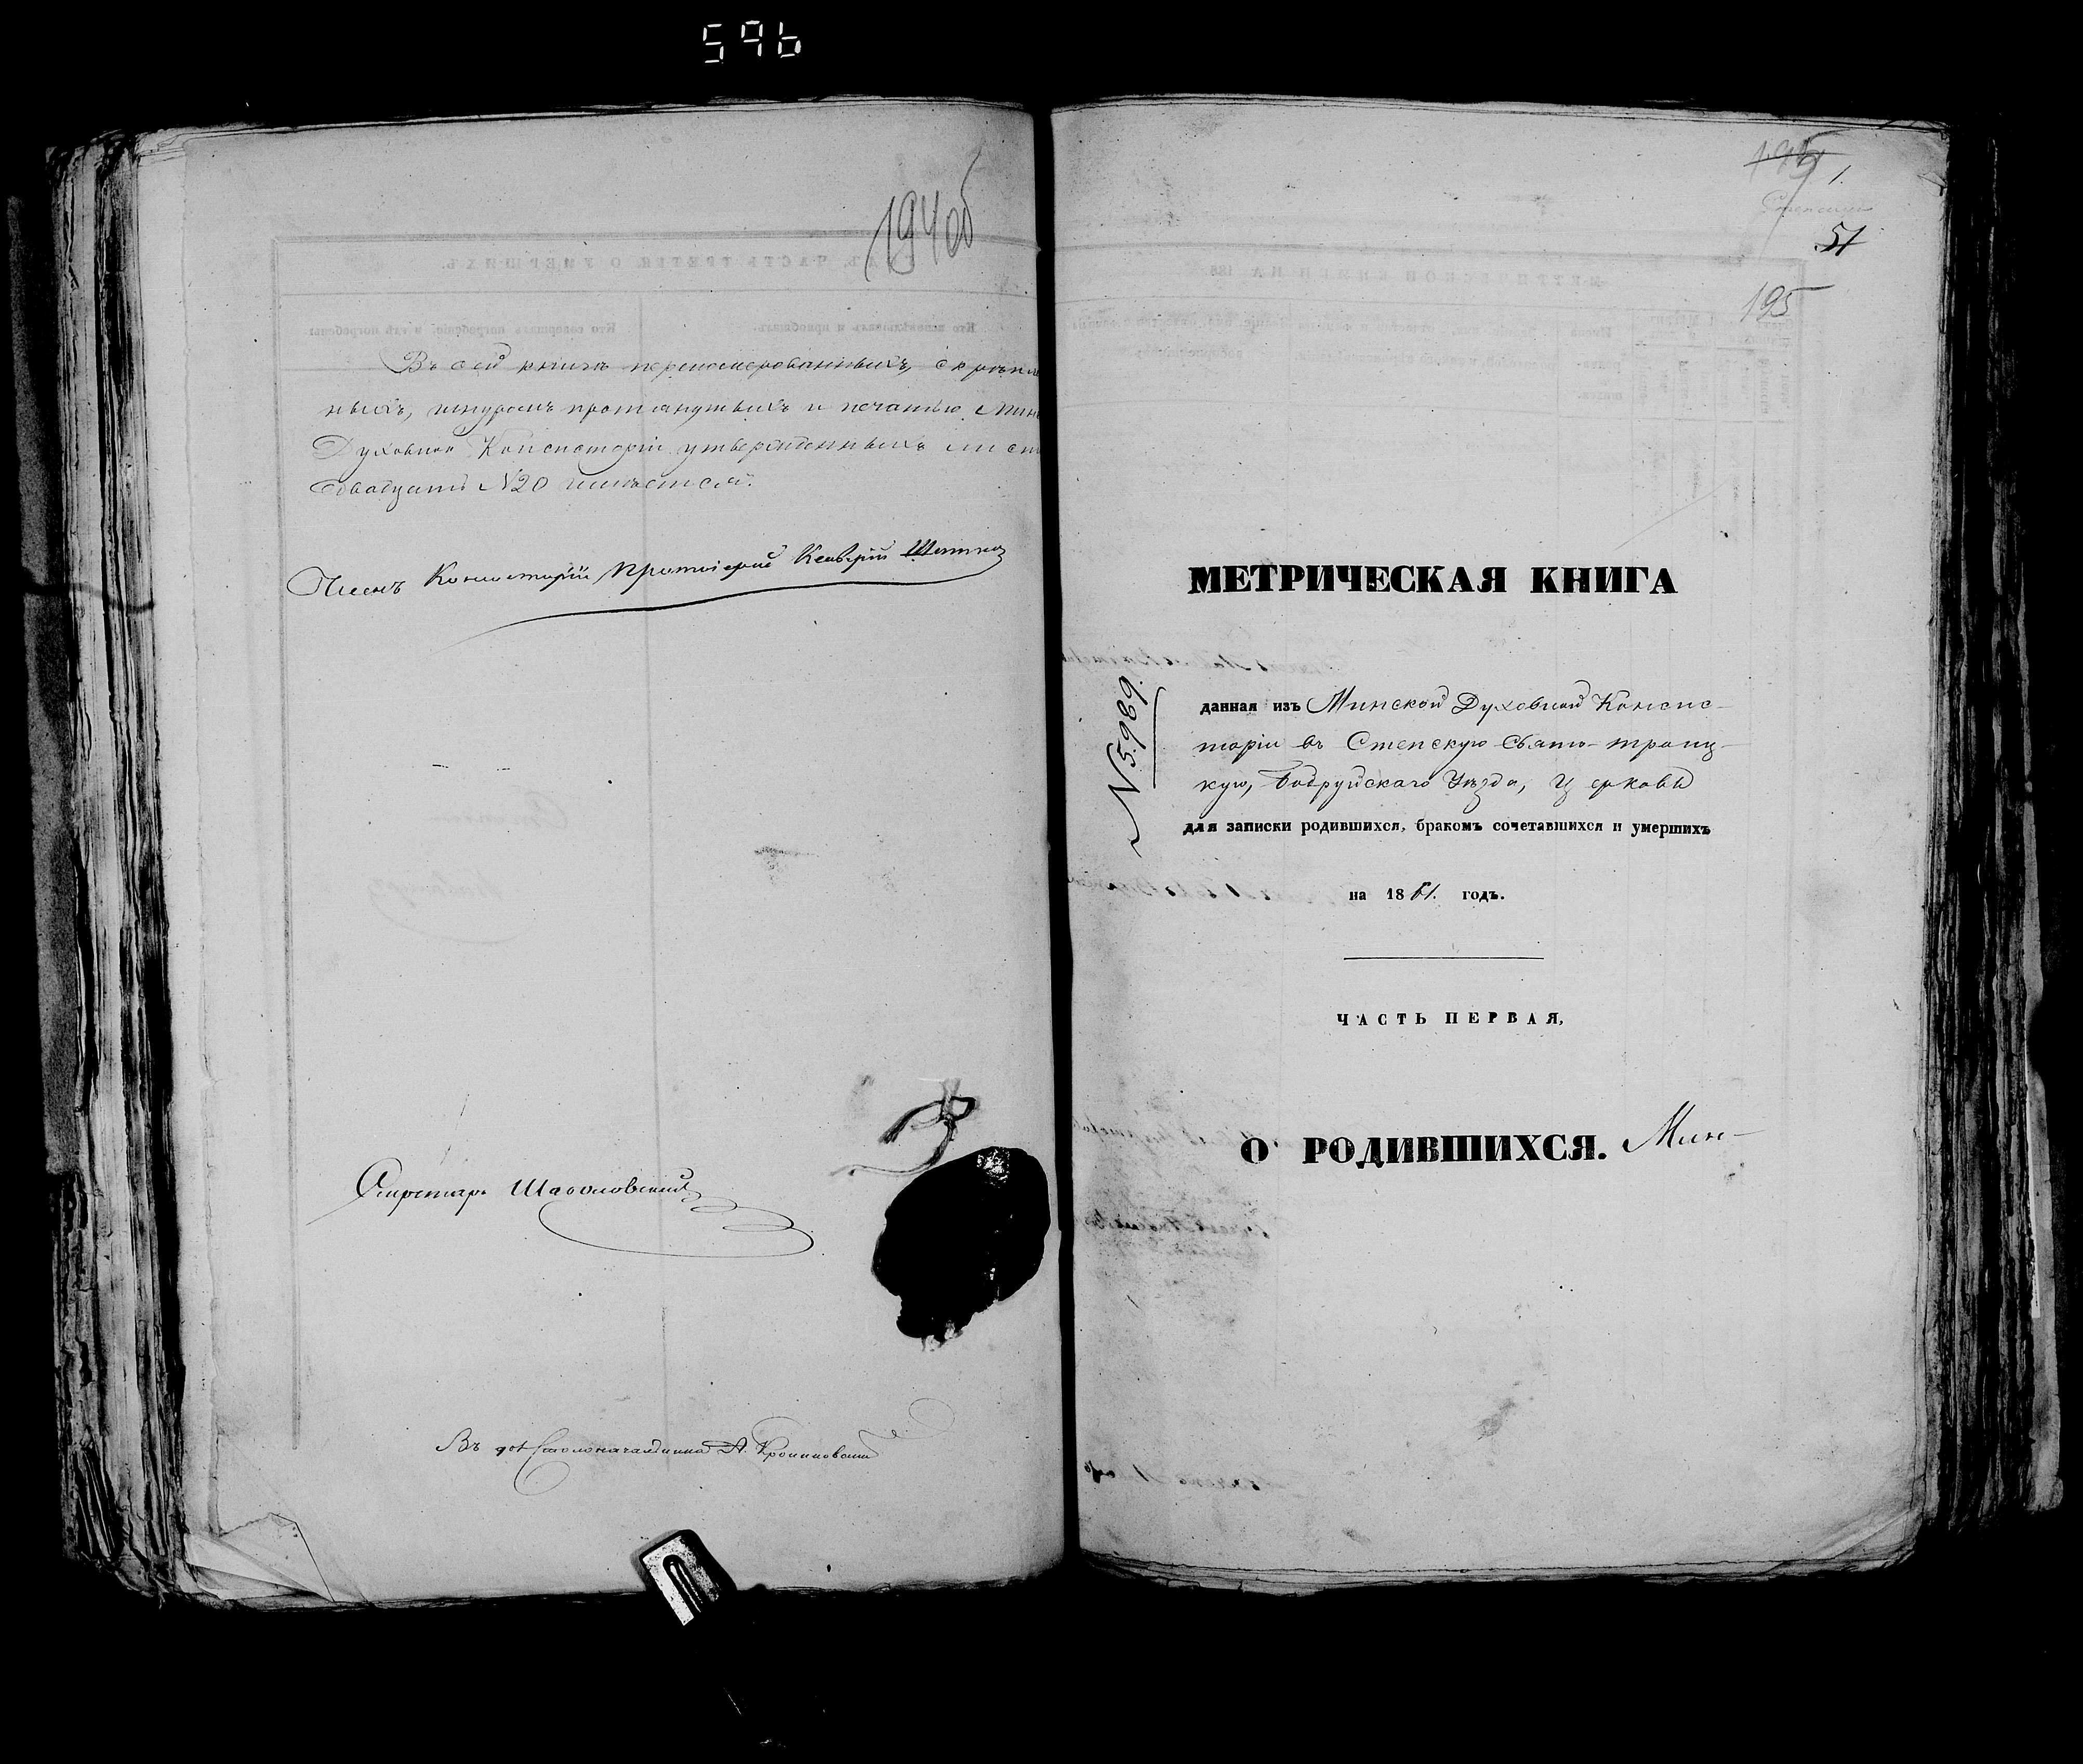 596
194об
Въ сей книгѣ перенумерованныхъ, скрѣпле
ныхъ, шнуромъ протянутыхъ и печатью Мин
Духовной Консисторіи утвержденныхъ лист
двадцать №20 имѣется.
Членъ Консисторіи Протоіерей
Секретарь
Въ Столоначальника А.
195
1.
51
195
МЕТРИЧЕСКАЯ КНИГА
№ 5989.
данная изъ Минской Духовной Консис-
торіи въ Степскую Свято-троиц-
кую, Бобруйскаго Уѣзда, Церковь
для записки родившихся, бракомъ сочетавшихся и умершихъ
на 1861. годъ.
ЧАСТЬ ПЕРВАЯ,
О РОДИВШИХСЯ. Мин-